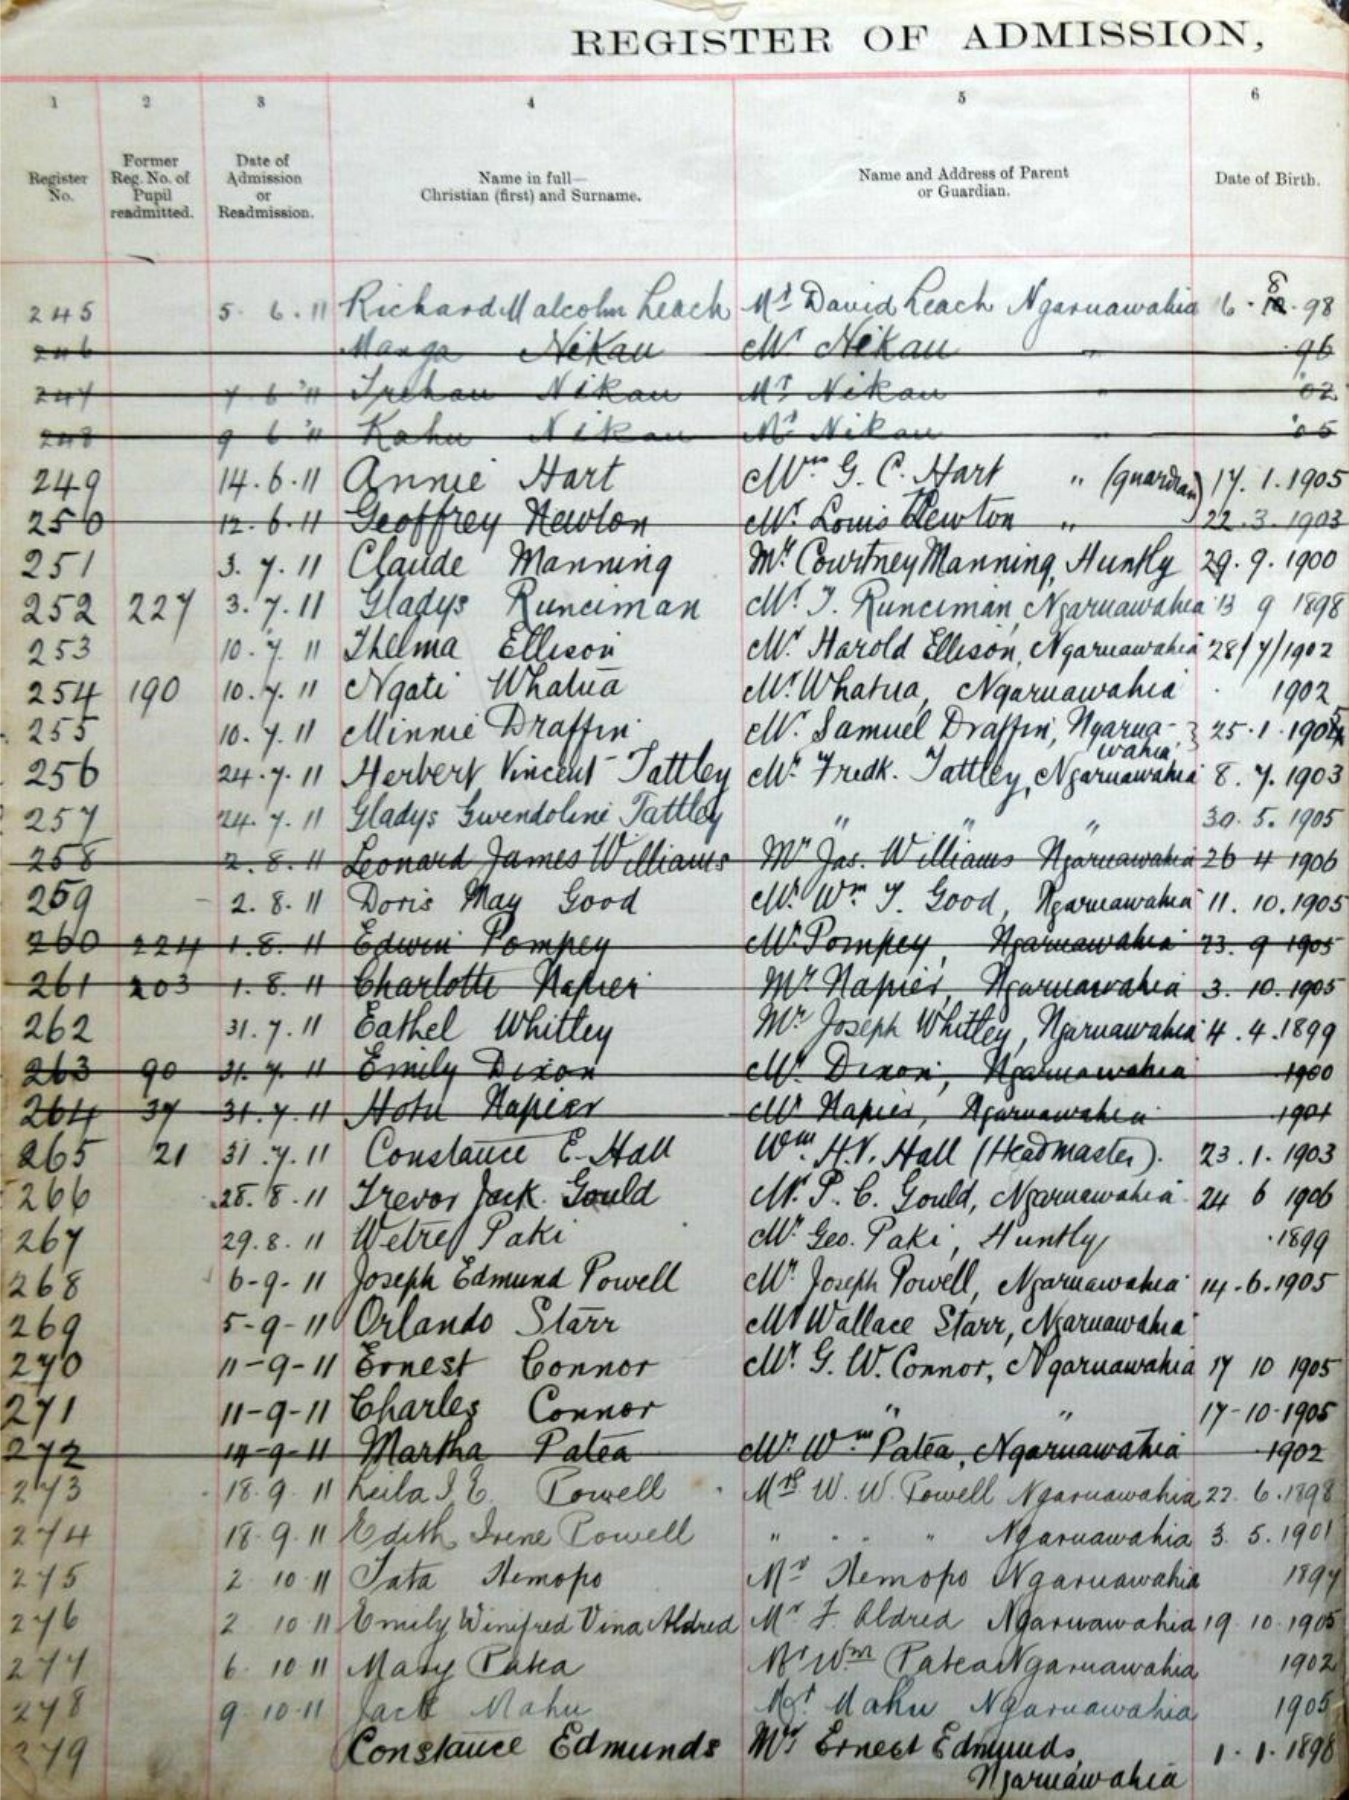 REGISTER OF ADMISSION,
1 2 3 4 5 6
Register No. Former Reg. No. of Pupil readmitted. Date of Admission or Readmission. Name in full— Christian (first) and Surname. Name and Address of Parent or Guardian. Date of Birth.
245 5. 6. 11 Richard Malcolm Leach Mr David Leach Ngaruawahia 6. 8 98
246 Manga Nikau Mr Nikau " 96
247 7 6 '11 Nikau Mr Nikau " '02
248 9 6 '11 Kahu Nikau Mr Nikau " '05
249 14.6.11 Annie Hart G. C. Hart " (guardian) 17. 1. 1905
250 12.6.11 Geoffrey Newton Mr Louis Newton " 22. 3. 1903
251 3. 7. 11 Claude Manning Mr Courtney Manning, Huntly 29. 9. 1900
252 227 3. 7. 11 Gladys Runciman Mr J. Runciman, Ngaruawahia 13 9 1898
253 10. 7. 11 Thelma Ellison Mr Harold Ellison, Ngaruawahia 28/7/1902
254 190 10. 7. 11 Ngati Whatua Mr Whatua, Ngaruawahia 1902
255 10. 7. 11 Minnie Draffin Mr Samuel Draffin, Ngarua- 25. 1. 1905
wahia
256 24. 7. 11 Herbert Vincent Tattley Mr Fredk. Tattley, Ngaruawahia 8. 7. 1903
257 24. 7. 11 Gladys Gwendoline Tattley " " " 30. 5. 1905
258 2. 8. 11 Leonard James Williams Mr Jas. Williams Ngaruawahia 26 4 1906
259 2. 8. 11 Doris May Good Mr Wm. T. Good, Ngaruawahia 11. 10. 1905
260 224 1. 8. 11 Edwin Pompey Mr Pompey, Ngaruawahia 23. 9 1905
261 203 1. 8. 11 Charlotte Napier Mr Napier, Ngaruawahia 3. 10. 1905
262 31. 7. 11 Eathel Whitley Mr Joseph Whitley, Ngaruawahia 4. 4. 1899
263 90 31. 7. 11 Emily Dixon Mr Dixon, Ngaruawahia 1900
264 37 31. 7. 11 Hotu Napier Mr Napier, Ngaruawahia 1901
265 21 31. 7. 11 Constance E. Hall Wm. H.V. Hall (Headmaster). 23. 1. 1903
266 28. 8. 11 Trevor Jack Gould Mr P. C. Gould, Ngaruawahia 24 6 1906
267 29. 8. 11 Wetre Paki Mr Geo. Paki, Huntly 1899
268 6-9-11 Joseph Edmund Powell Mr Joseph Powell, Ngaruawahia 14. 6. 1905
269 5-9-11 Orlando Starr Mr Wallace Starr, Ngaruawahia
270 11-9-11 Ernest Connor Mr G. W. Connor, Ngaruawahia 17 10 1905
271 11-9-11 Charles Connor " " 17-10-1905
272 14-9-11 Martha Patea Mr Wm Patea, Ngaruawahia 1902
273 18. 9. 11 Leila I. E. Powell Mrs W. W. Powell Ngaruawahia 22. 6. 1898
274 18. 9. 11 Edith Irene Powell " " " Ngaruawahia 3. 5. 1901
275 2 10 11 Tata Hemopo Mr Hemopo Ngaruawahia 1897
276 2 10 11 Emily Winifred Vina Aldred Mr F. Aldred Ngaruawahia 19. 10. 1905
277 6. 10 11 Mary Patea Mr Wm Patea Ngaruawahia 1902
278 9 10 11 Jack Mahu Mr Mahu Ngaruawahia 1905
279 Constance Edmunds Mr Ernest Edmunds, 1. 1. 1898
Ngaruawahia